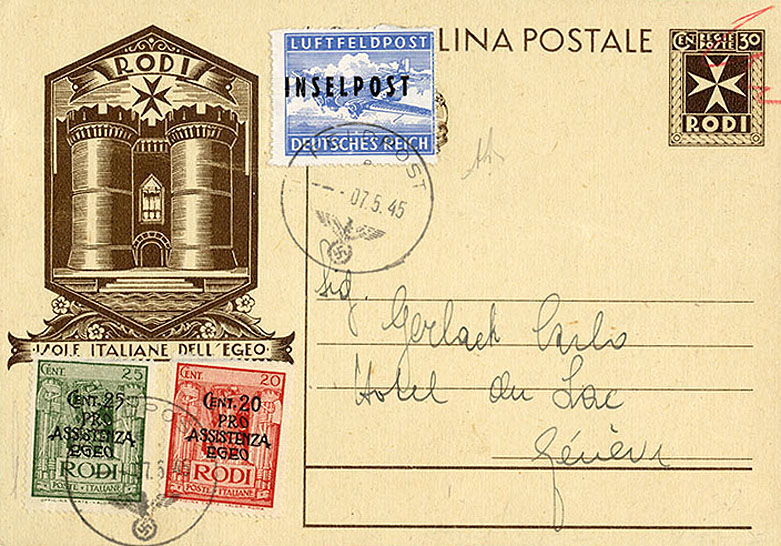 LINA POSTALE
CEN REGIE POSTE 30
RODI
RODI
ISOLE ITALIANE DELL'EGEO
LUFTFELDPOST
INSELPOST
DEUTSCHES REICH
07.5.45
Sig. Gerlach Carlo
Hotel du Lac
CENT. 25
CENT. 25
PRO
ASSISTENZA
EGEO
RODI
POSTE ITALIANE
CENT. 20
CENT. 20
PRO
ASSISTENZA
EGEO
RODI
POSTE ITALIANE